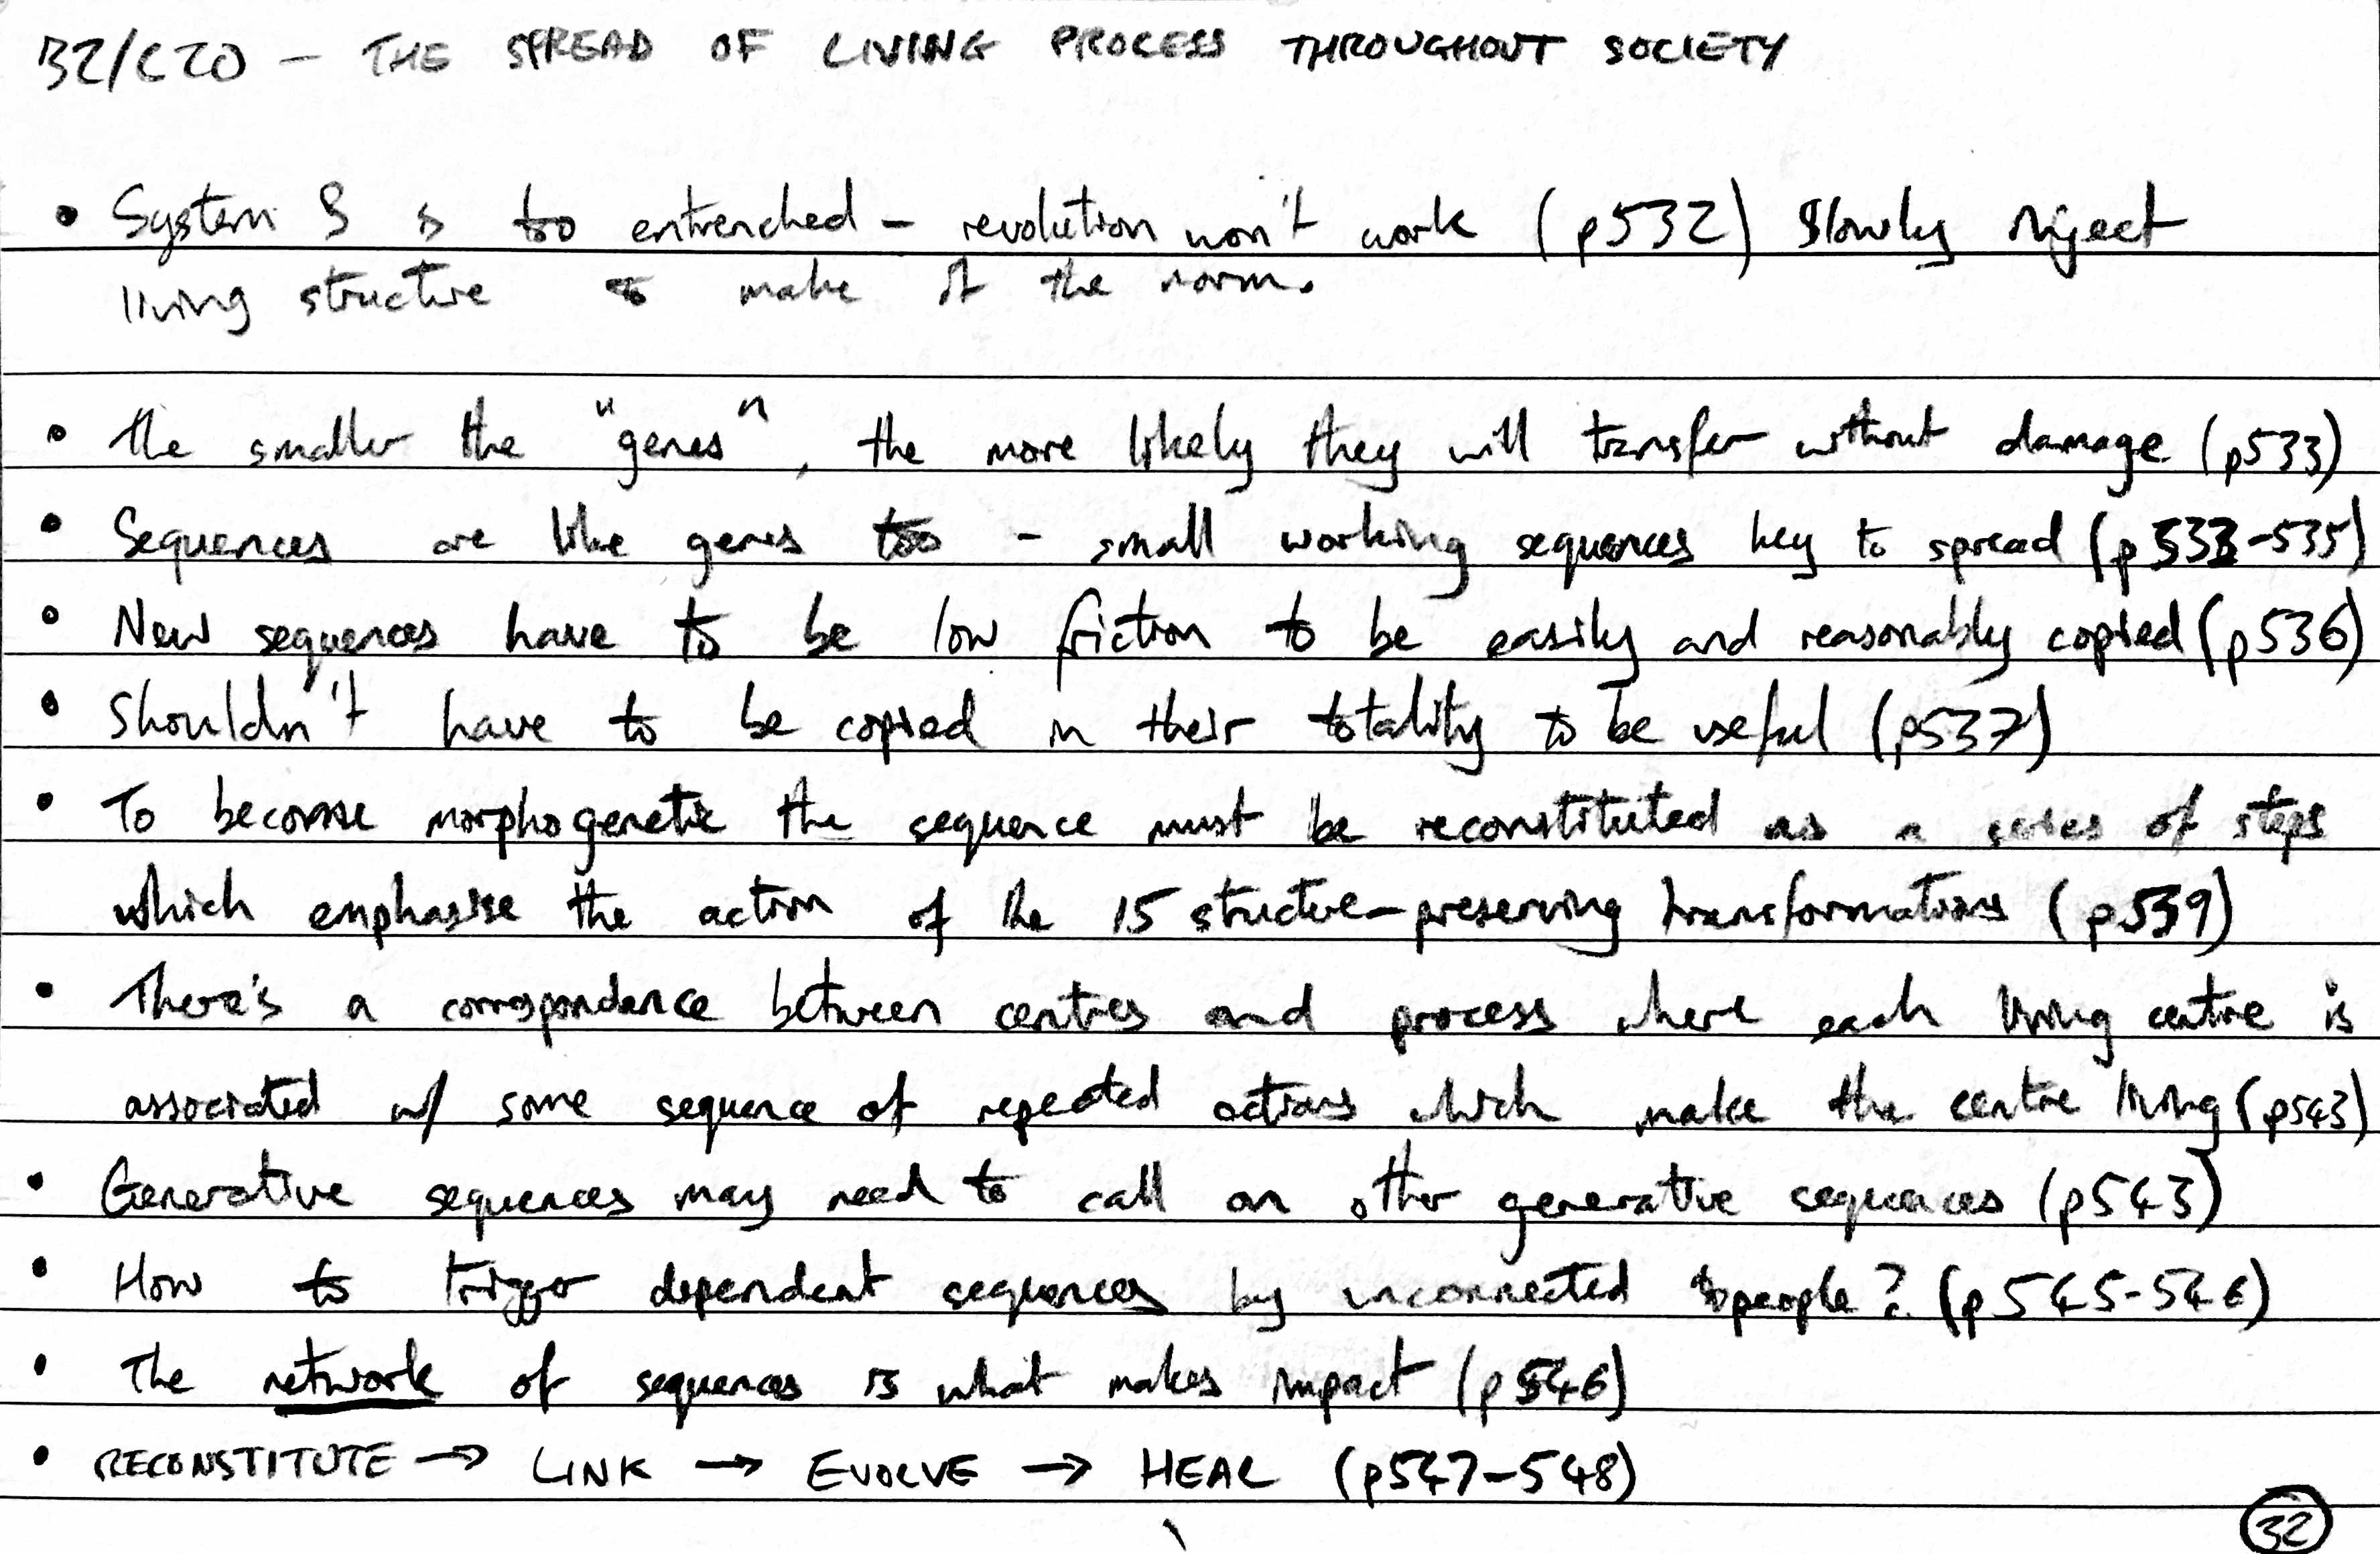 B2/C20 – THE SPREAD OF LIVING PROCESS THROUGHOUT SOCIETY
• System B is too entrenched – revolution won't work (p532) Slowly inject
living structure to make it the norm.
• The smaller the "genes", the more likely they will transfer without damage (p533)
• Sequences are like genes too – small working sequences key to spread (p533-535)
• New sequences have to be low friction to be easily and reasonably copied (p536)
• Shouldn't have to be copied in their totality to be useful (p537)
• To become morphogenetic the sequence must be reconstituted as a series of steps
which emphasise the action of the 15 structure-preserving transformations (p539)
• There's a correspondence between centres and process where each living centre is
associated w/ some sequence of repeated actions which make the centre living (p543)
• Generative sequences may need to call on other generative sequences (p543)
• How to trigger dependent sequences by unconnected people? (p545-546)
• The network of sequences is what makes impact (p546)
• RECONSTITUTE → LINK → EVOLVE → HEAL (p547-548)
32